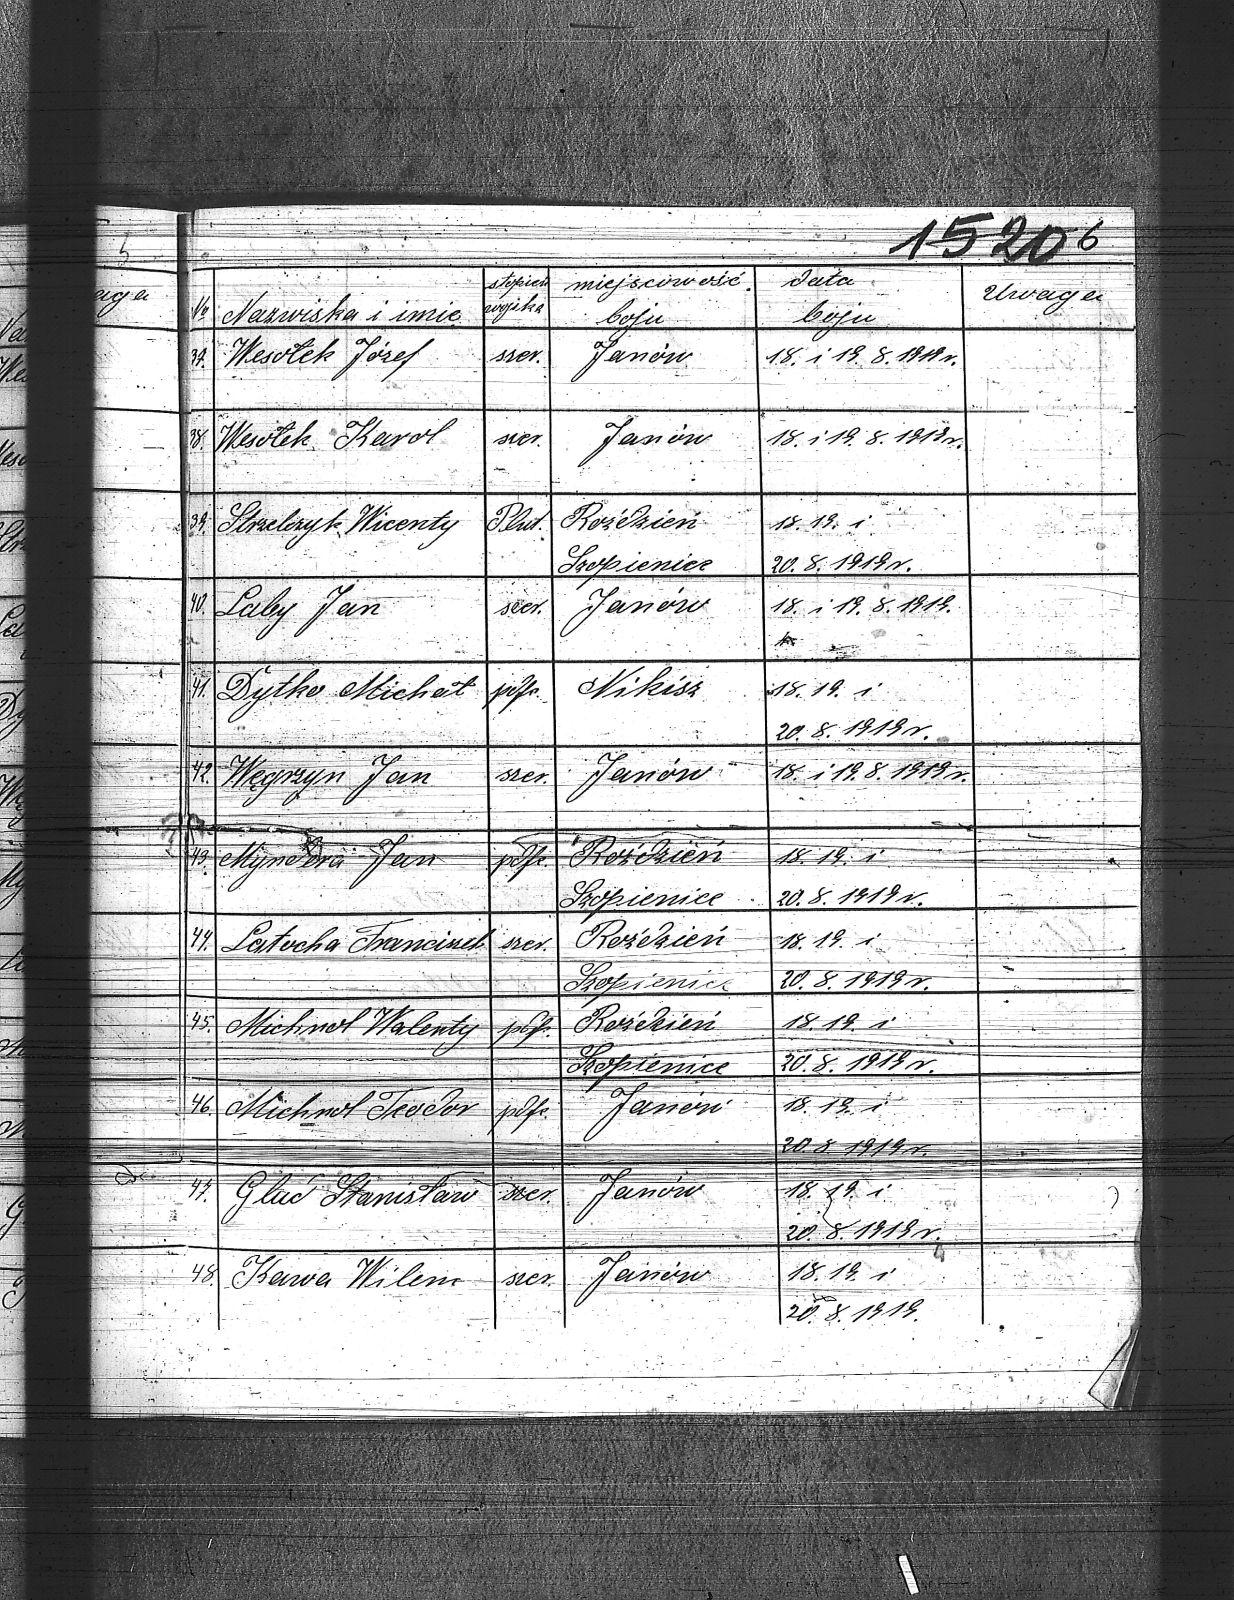 1520 6
No Nazwiska i imie stopień wojska miejscowość boju data boju Uwaga
37. Wesołek Józef szer. Janów 18. i 19. 8. 1919 r.
38. Wesołek Karol szer. Janów 18. i 19. 8. 1919 r.
39. Strzelczyk Wicenty Plut. Roździeń 18. 19. i
Szopienice 20. 8. 1919 r.
40. Laby Jan szer. Janów 18. i 19. 8. 1919.
41. Dytko Michał pdfr. Nikisz 18. 19. i
20. 8. 1919 r.
42. Węgrzyn Jan szer. Janów 18. i 19. 8. 1919 r.
43. Jan pdfr. Roździeń 18. 19. i
Szopienice 20. 8. 1919 r.
44. Latocha Franciszek szer. Roździeń 18. 19. i
Szopienice 20. 8. 1919 r.
45. Michnol Walenty pdfr. Roździeń 18. 19. i
Szopienice 20. 8. 1919 r.
46. Michnol Teodor pdfr. Janów 18. 19. i
20. 8. 1919 r.
47. Gluć Stanisław szer. Janów 18. 19. i
20. 8. 1919 r.
48. Kawa Wilem szer. Janów 18. 19. i
20. 8. 1919.